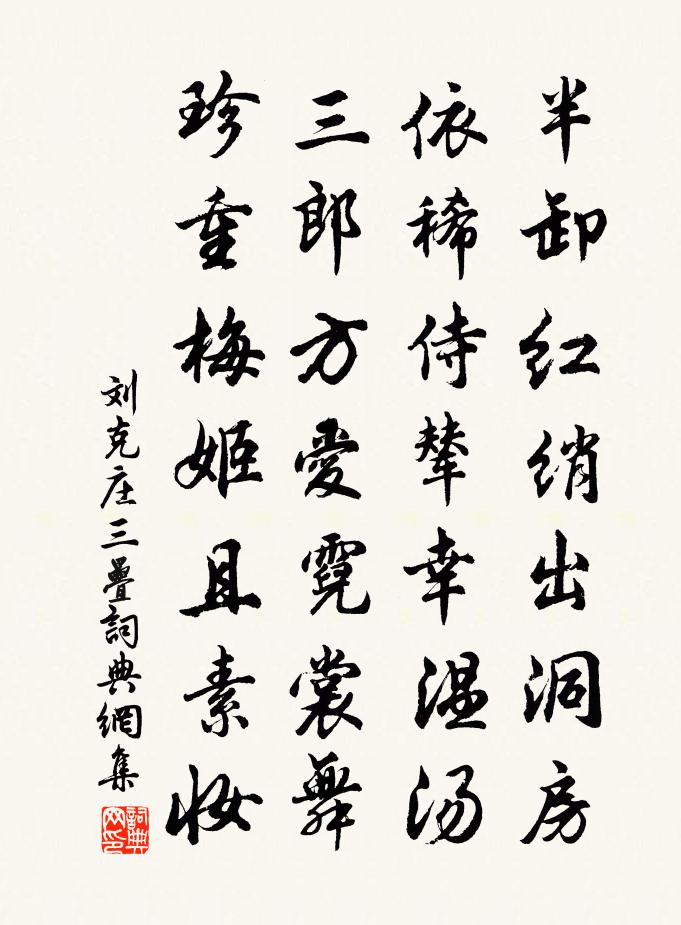 半卸红绡出洞房
依稀侍辇幸温汤
三郎方愛霓裳舞
珍重梅姬且素妆
刘克庄三疊詞典網集
詞典网印